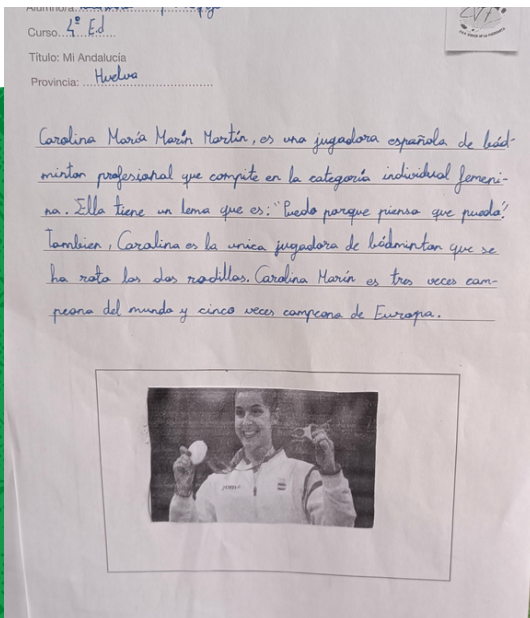 Alumno/a:
Curso.. 4º E.d
Título: Mi Andalucía
Provincia: Huelva
Carolina María Marín Martín, es una jugadora española de bád-
minton profesional que compite en la categoría individual femeni-
na. Ella tiene un lema que es: "Puedo porque pienso que puedo".
Tambien, Carolina es la unica jugadora de bádminton que se
ha roto las dos rodillas. Carolina Marín es tres veces cam-
peona del mundo y cinco veces campeona de Europa.